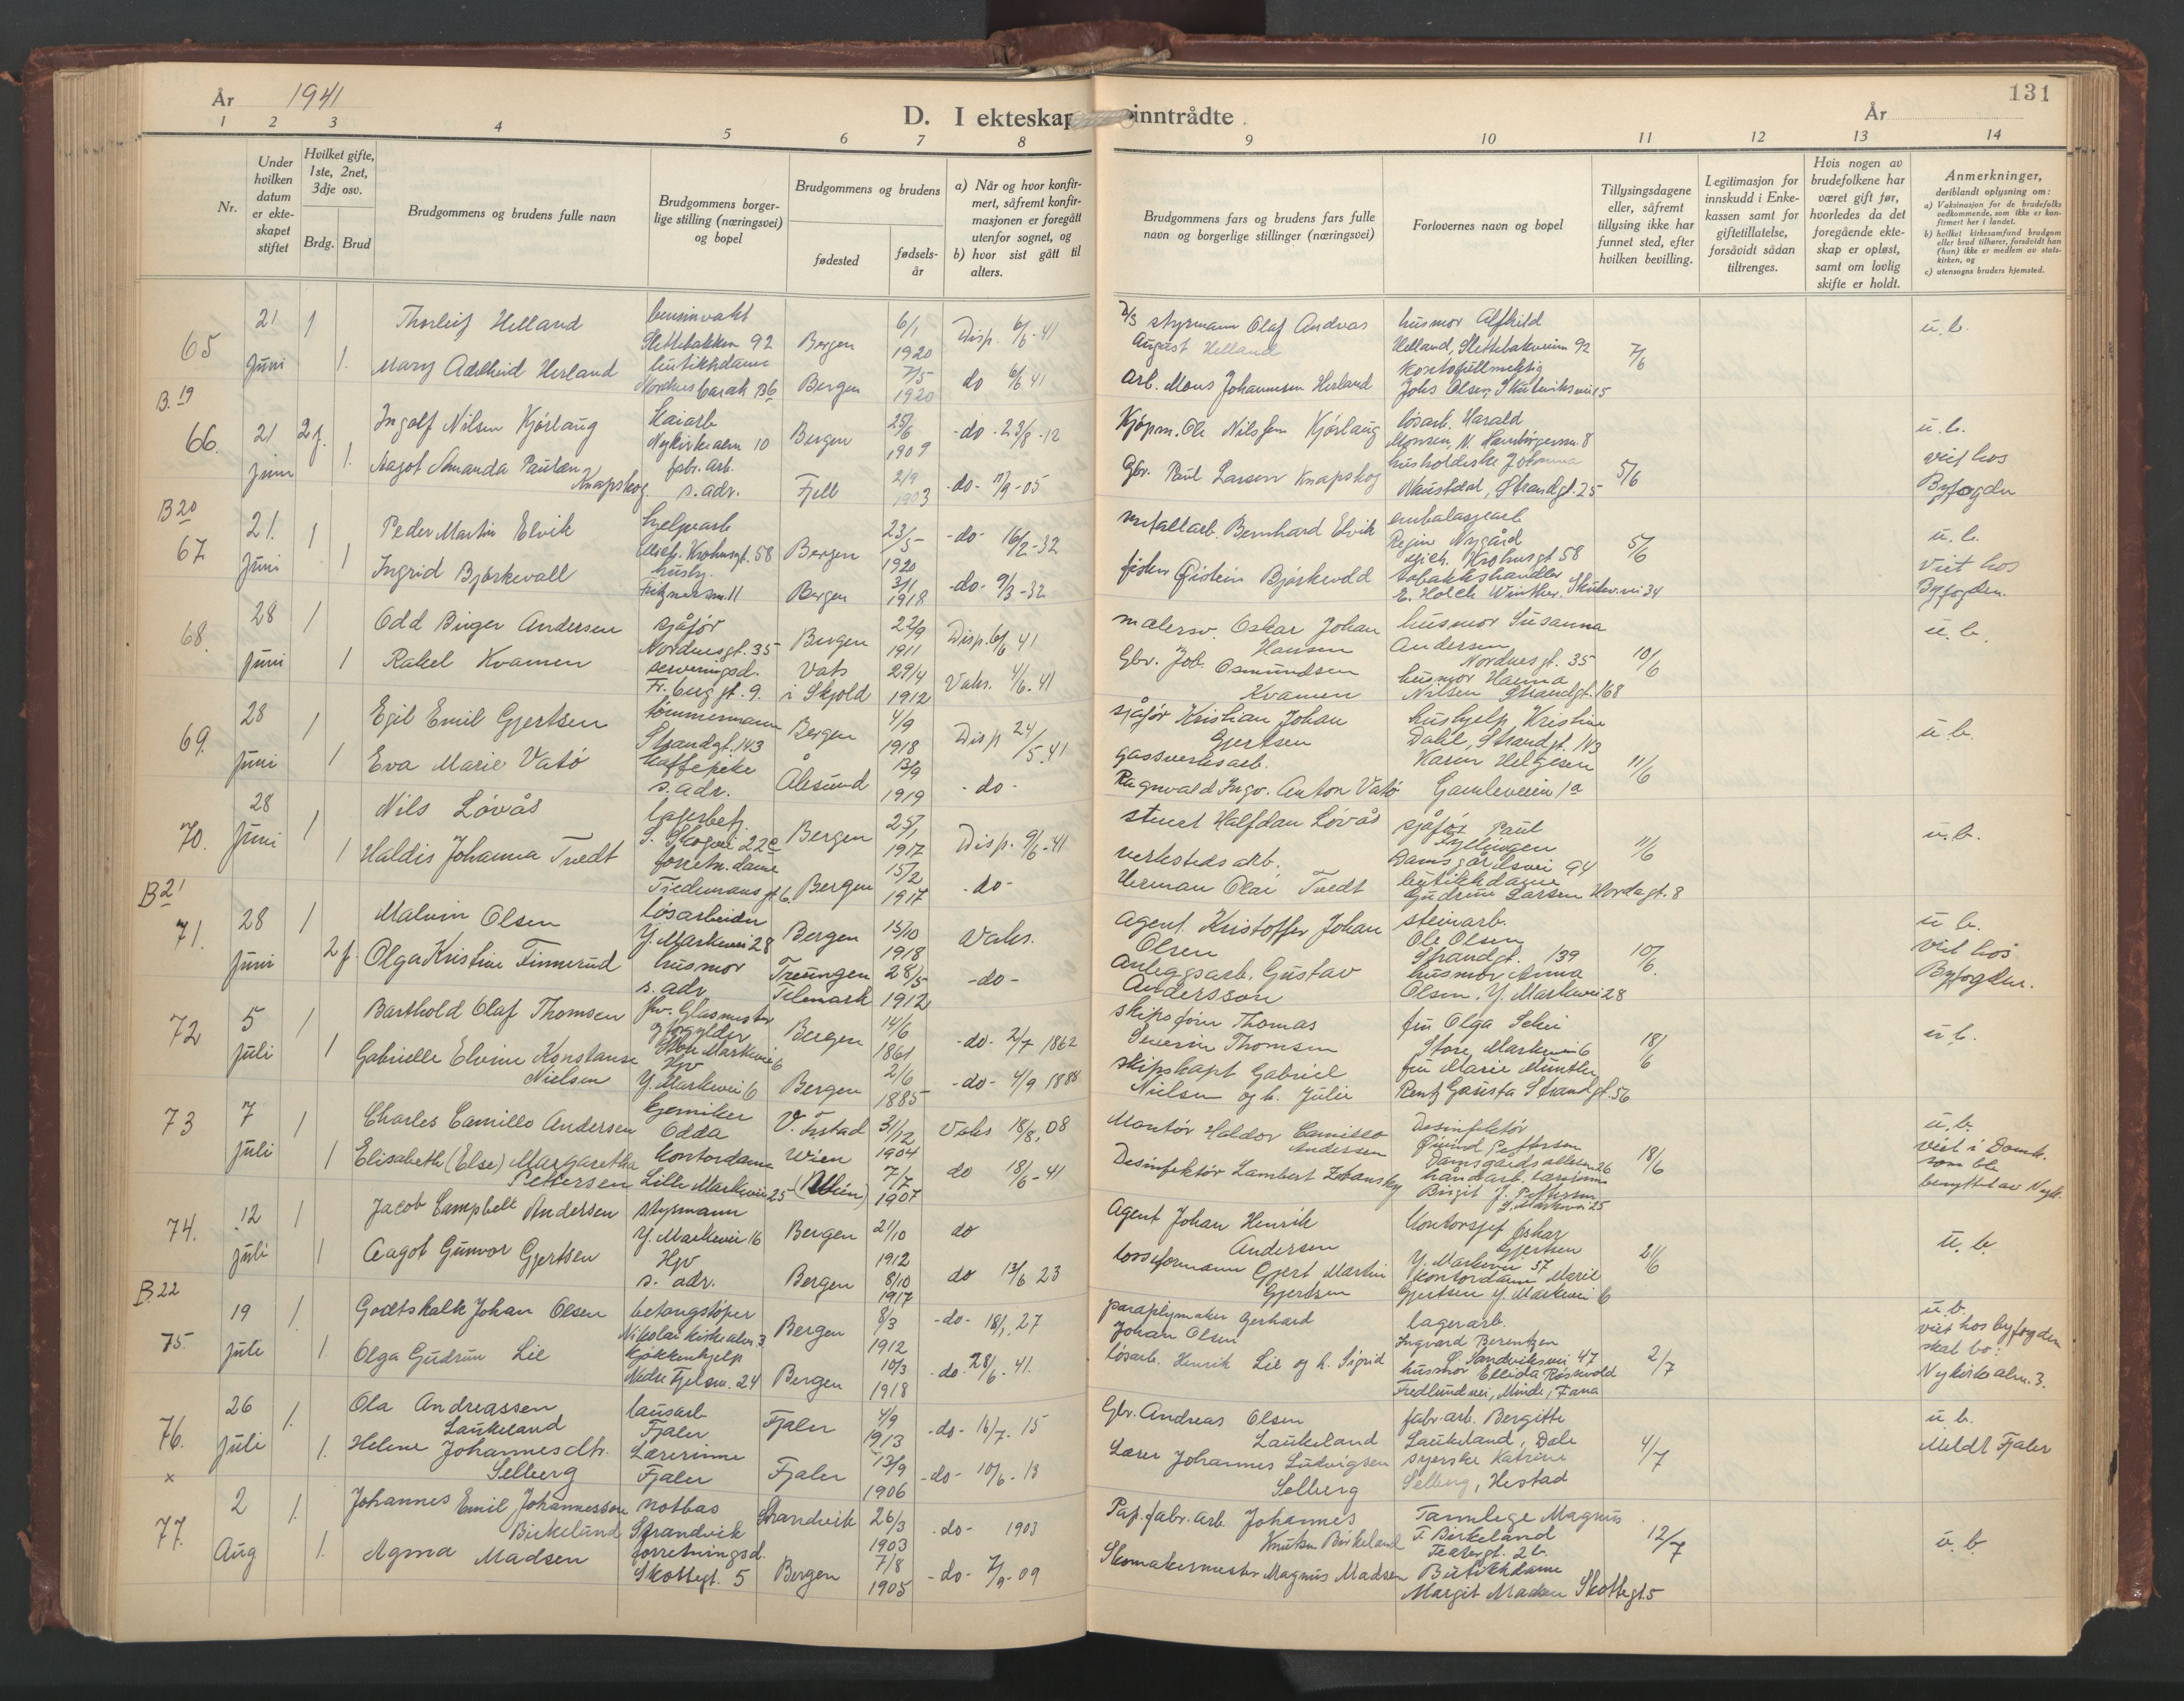 År 1941
D. I ekteskap inntrådte
År
131
1 2 3 4 5 6 7 8 9 10 11 12 13 14
Nr.
Under hvilken datum er ekteskapet stiftet
Hvilket gifte, 1ste, 2net, 3dje osv.
Brdg. Brud
Brudgommens og brudens fulle navn
Brudgommens borgerlige stilling (næringsvei) og bopel
Brudgommens og brudens
fødested
fødsels-år
a) Når og hvor konfirmert, såfremt konfirmasjonen er foregått utenfor sognet, og
b) hvor sist gått til alters.
Brudgommens fars og brudens fars fulle navn og borgerlige stillinger (næringsvei)
Forlovernes navn og bopel
Tillysingsdagene eller, såfremt tillysing ikke har funnet sted, efter hvilken bevilling.
Legitimasjon for innskudd i Enkekassen samt for giftetillatelse, forsåvidt sådan tiltrenges.
Hvis nogen av brudefolkene har været gift før, hvorledes da det foregående ekteskap er opløst, samt om lovlig skifte er holdt.
Anmerkninger, deriblandt oplysning om:
a) Vaksinasjon for de brudefolks vedkommende, som ikke er konfirmert her i landet.
b) hvilket kirkesamfund brudgom eller brud tilhører, forsåvidt han (hun) ikke er medlem av statskirken, og
c) utensogns bruders hjemsted.
65 21 1 Thorleif Helland bensinvakt Slettebakken 92 Bergen 6/1 1920 Disp. 6/6-41 styrmann Olaf Andreas August Helland husmor Alfhild Helland, Slettebakveien 92 7/6 u.b.
Juni 1. Mary Adelheid Herland butikkdame Nordnes barak B6 Bergen 7/5 1920 do 6/6 41 Arb. Mons Johannesen Herland kontorfullmektig Johs Olsen, Skuteviksvei 15
B.19
66. 21 2g. Ingolf Nilsen Kjørlaug Kaiarb Nykirkealm 10 Bergen 25/6 1909 -do- 23/8-12 Kjøpm. Ole Nilssen Kjørlaug løsarb. Harald Monsen, N. Hamburgersm. 8 5/6 u.b.
Juni 1. Magot Amanda Paulsen Knapskog fabr. arb. s. adr. Fjell 2/9 1903 -do- 17/9-05 Gbr. Paul Larsen Knapskog husholderske Johanna Naustdal, Strandgt. 25 viet hos Byfogden
B 20
67 21. 1 Peder Martin Elvik hjelpearb Mich. Krohnsgt. 58 Bergen 23/5 1920 -do- 16/2-32 metallarb. Bernhard Elvik emballasjearb Regine Nygård Mich. Krohnsgt 58 5/6 u.b.
Juni 1 Ingrid Bjørkevoll hushj. Fritznersm. 11 Bergen 3/1 1918 -do- 9/3-32 fisker Øistein Bjørkevold tobakkshandler E. Holck Winther, Skutev.vei 34 Viet hos Byfogden.
68. 28 1 Odd Birger Andersen sjåfør Nordnesgt. 35 Bergen 22/9 1911 Disp. 6/6 41 malersv. Oskar Johan Hansen husmor Susanna Andersen Nordnesgt. 35 10/6 u.b.
Juni 1 Rakel Kvamen serveringsd. Fr. berggt. 9. Vats i Skjold 29/4 1912 Vaks. 4/6-41 Gbr. Job. Osmundsen Kvamen husmor Hanna Nilsen Strandgt. 168
69. 28 1 Egil Emil Gjertsen tømmermann Strandgt. 143 Bergen 4/9 1918 Disp 24/5.41 sjåfør Kristian Johan Gjertsen hushjelp Kristine Dahl, Strandgt. 143 11/6 u.b.
Juni 1 Eva Marie Vatø Kaffepike s. adr. Ålesund 13/9 1919 -do- gassverksarb. Ragnvald Ingv. Anton Vatø Karen Helgesen Gamleveien 1a
70. 28 Juni 1 Nils Løvås lagerbetj. S. Skogvei 22c Bergen 25/1 1917 Disp. 9/6-41 stuert Halfdan Løvås sjåfør Paul Gyllingen Damsgårdsvei 94 11/6 u.b.
1 Haldis Johanna Tvedt forretn.dame Tidemansgt 6. Bergen 15/2 1917 -do- verkstedsarb. Herman Olai Tvedt butikkdame Gudrun Larsen Hordagt. 8
B 21
71. 28 1 Malvin Olsen løsarbeider Y. Markevei 28 Bergen 15/10 1918 Vaks. agent Kristoffer Johan Olsen steinarb. Ole Olsen Strandgt. 139 10/6. u b.
Juni 2 f. Olga Kristine Finnerud husmor s. adr Treungen Telemark 28/5 1912 -do- Anleggsarb. Gustav Andersson husmor Anna Olsen. Y. Markevei 28 viet hos Byfogden.
72 5 1 Barthold Olaf Thomsen fhv. Glasmester og forgylder Store Markevei 6 Bergen 14/6 1861 -do- 2/7 1862 skipsfører Thomas Severin Thomsen fru Olga Schei Store Markevei 6 18/6 u.b.
Juli 1 Gabrielle Elvine Konstanse Nielsen Hjv Y. Markevei 6 Bergen 2/6 1885 -do- 4/9 1888 skipskapt Gabriel Nielsen og h. Julie fru Marie Münther Rentz Gausta Strandgt. 56
73 7 1 Charles Camillo Andersen kjemiker Odda V. Tustad 31/12 1904 Vaks 18/8, 08 Montør Haldor Camillo Andersen Desinfektør Øivind Pettersen Damsgårdsalleen 26 18/6 u.b. viet i Domk. som ble benyttet av Nyk.
Juli 1 Elisabeth (Else) Margaretha Pettersen Kontordame Lille Markevei 25 Wien (Wien) 7/7 1907 do 18/6-41 Desinfektør Lambert Zobansky håndarb. lærerinne Birgit J. Pettersen L. Markevei 25
74. 12 1 Jacob Campbell Andersen styrmann Y. Markevei 16 Bergen 21/10 1912 do Agent Johan Henrik Andersen Kontorsjef Oskar Gjertsen Y. Markevei 37 21/6 u.b.
Juli 1 Aagot Gunvor Gjertsen Hjv s. adr. Bergen 8/10 1917 do 13/6 23 losseformann Gjert Martin Gjertsen kontordame Marie Gjertsen Y Markevei 6
B.22
75. 19 1. Godtskalk Johan Olsen betongstøper Nikolaikirkealm. 3 Bergen 8/3 1912 -do- 18/1. 27 paraplymaker Gerhard Johan Olsen lagerarb. Ingvard Berentzen S. Sandviksvei 47 2/7 u.b. viet hos byfogden skal bo: Nykirkealm. 3.
Juli 1. Olga Gudrun Lie kjøkkenhjelp Nedre Fjelsm. 24 Bergen 10/3 1918 -do- 28/6-41. løsarb. Henrik Lie og h. Sigrid husmor Ellida Røsevold Fredlundvei, Minde, Fana
76. 26 1. Ola Andreassen Laukeland lausarb Fjaler Fjaler 4/9 1913 -do- 16/7-15 Gbr. Andreas Olsen Laukeland fabr. arb. Bergitte Laukeland, Dale 4/7 u.b.
x Juli 1. Helene Johannesdtr. Selberg Lærerinne Fjaler Fjaler 13/9 1906 -do- 10/6-13 Lærer Johannes Ludvigsen Selberg syerske Katrine Selberg, Hestad Meldt Fjaler
77. 2 1. Johannes Emil Johannesson Birkelund notbas Strandvik Strandvik 26/3 1903 -do- 1903 Pap. fabr. arb. Johannes Knutsen Birkeland Tannlege Magnus F. Birkeland Teatergt. 2b. 12/7 u.b.
Aug 1. Agma Madsen forretningsd. Skottegt. 5 Bergen 7/8 1905 -do- 7/9-09 Skomakermester Magnus Madsen Butikkdame Margit Madsen Skottegt. 5